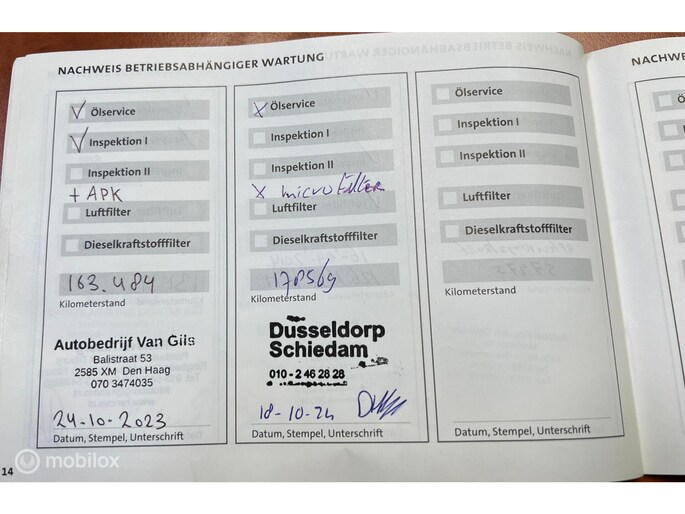 NACHWEIS BETRIEBSABHÄNGIGER WARTUNG
Ölservice
Inspektion I
Inspektion II
+ APK
Luftfilter
Dieselkraftstofffilter
163.484
Kilometerstand
Autobedrijf Van Gils
Balistraat 53
2585 XM Den Haag
070 3474035
24-10-2023
Datum, Stempel, Unterschrift
Ölservice
Inspektion I
Inspektion II
x microfilter
Luftfilter
Dieselkraftstofffilter
178569
Kilometerstand
Dusseldorp
Schiedam
010-2 46 28 28
18-10-24
Datum, Stempel, Unterschrift
Ölservice
Inspektion I
Inspektion II
Luftfilter
Dieselkraftstofffilter
Kilometerstand
Datum, Stempel, Unterschrift
14
mobilox